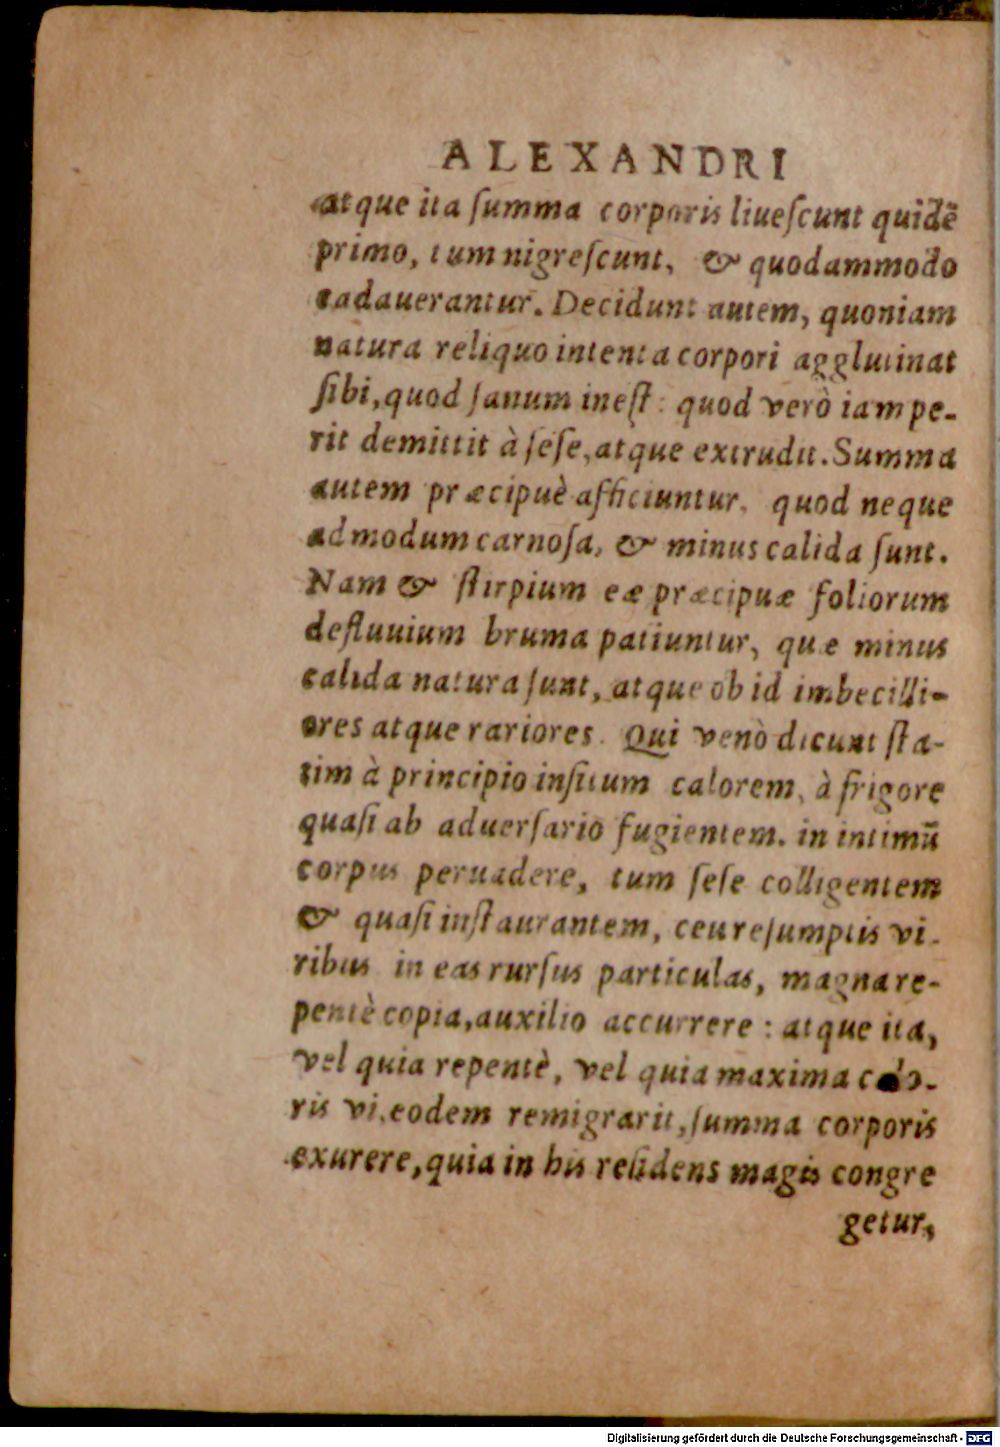 ALEXANDRI
atque ita ſumma corporis liueſcunt quidẽ
primo, tum nigreſcunt, & quodammodo
cadauerantur. Decidunt autem, quoniam
natura reliquo intenta corpori agglutinat
ſibi, quod ſanum ineſt: quod verò iam pe-
rit demittit à ſeſe, atque extrudit. Summa
autem præcipuè afficiuntur, quod neque
admodum carnoſa, & minus calida ſunt.
Nam & ſtirpium eæ præcipuæ foliorum
defluuium bruma patiuntur, quæ minus
calida natura ſunt, atque ob id imbecilli-
ores atque rariores. Qui venò dicunt ſta-
tim à principio inſitum calorem, à frigore
quaſi ab aduerſario fugientem. in intimũ
corpus peruadere, tum ſeſe colligentem
& quaſi inſtaurantem, ceu reſumptis vi-
ribus in eas rurſus particulas, magna re-
pentè copia, auxilio accurrere: atque ita,
vel quia repentè, vel quia maxima calo-
ris vi, eodem remigrarit, ſumma corporis
exurere, quia in his reſidens magis congre
getur,
Digitalisierung gefördert durch die Deutsche Forschungsgemeinschaft - DFG